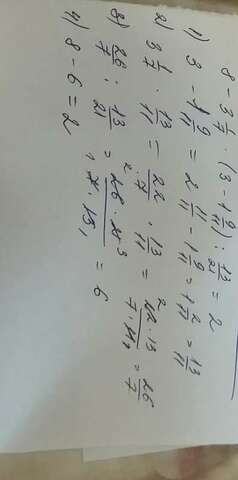 8 - 3 1/7 · (3 - 1 9/11) : 13/21 = 2
1) 3 - 1 9/11 = 2 11/11 - 1 9/11 = 1 2/11 = 13/11
2) 3 1/7 · 13/11 = 22/7 · 13/11 = 22 · 13 / 7 · 11 = 26/7
3) 26/7 : 13/21 = 26 · 21 / 7 · 13 = 6
4) 8 - 6 = 2